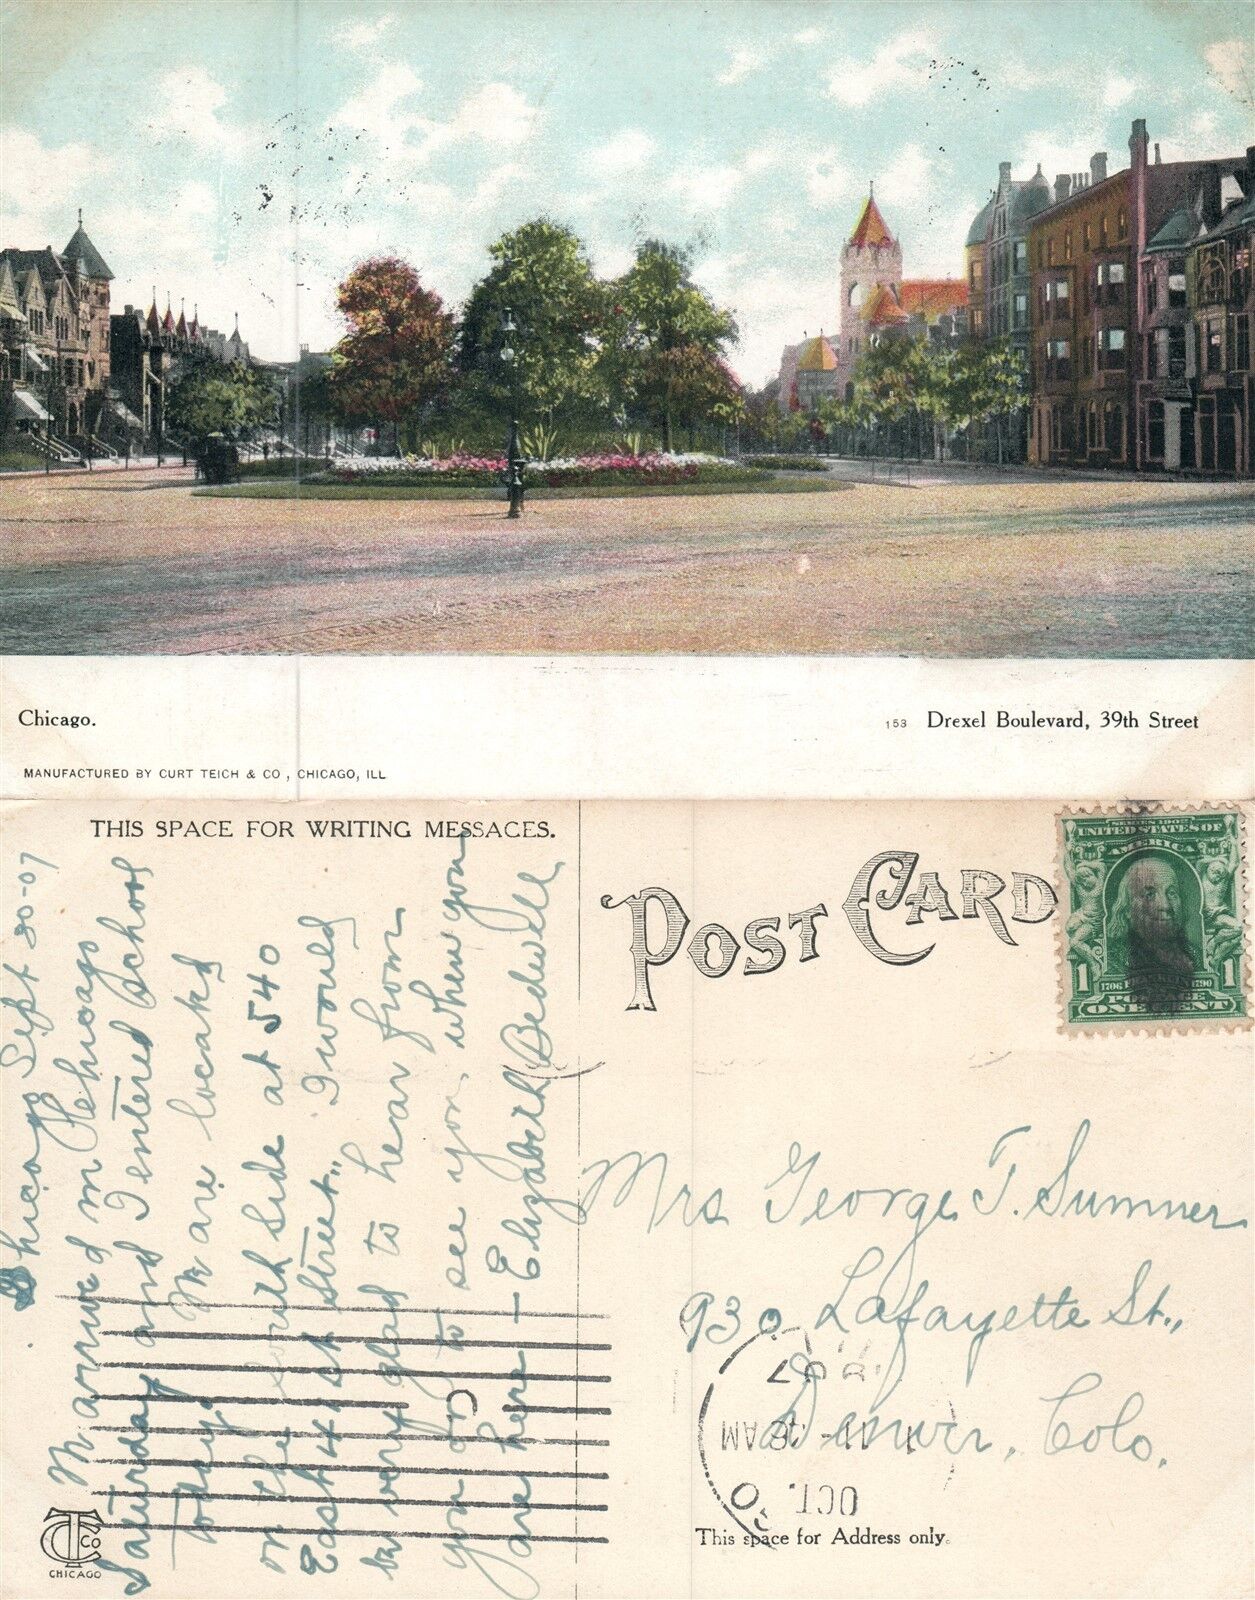 Chicago.
153 Drexel Boulevard, 39th Street
MANUFACTURED BY CURT TEICH & CO., CHICAGO, ILL
THIS SPACE FOR WRITING MESSAGES.
Chicago Sept 30-07
We arrived in Chicago
Saturday and I entered School
today. We are located
on the South Side at 540
East 41st Street,, I would
be very glad to hear from
you or to see you when you
are here — Elizabeth Bedwell
TC CO
CHICAGO
POST CARD
SERIES 1902
UNITED STATES OF
AMERICA
1 1706 FRANKLIN 1790 1
POSTAGE
ONE CENT
Mrs George T. Sumner
930 Lafayette St.,,
Denver, Colo.
OCT.
1
11-
AM
07
This space for Address only.